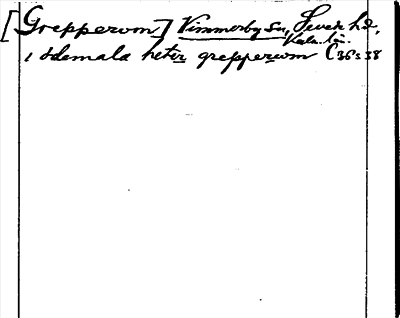 [Grepperom] Vimmerby sn, Sevede hd,
Kalm. län.
i tdemala heter grepperom C 36 s 38